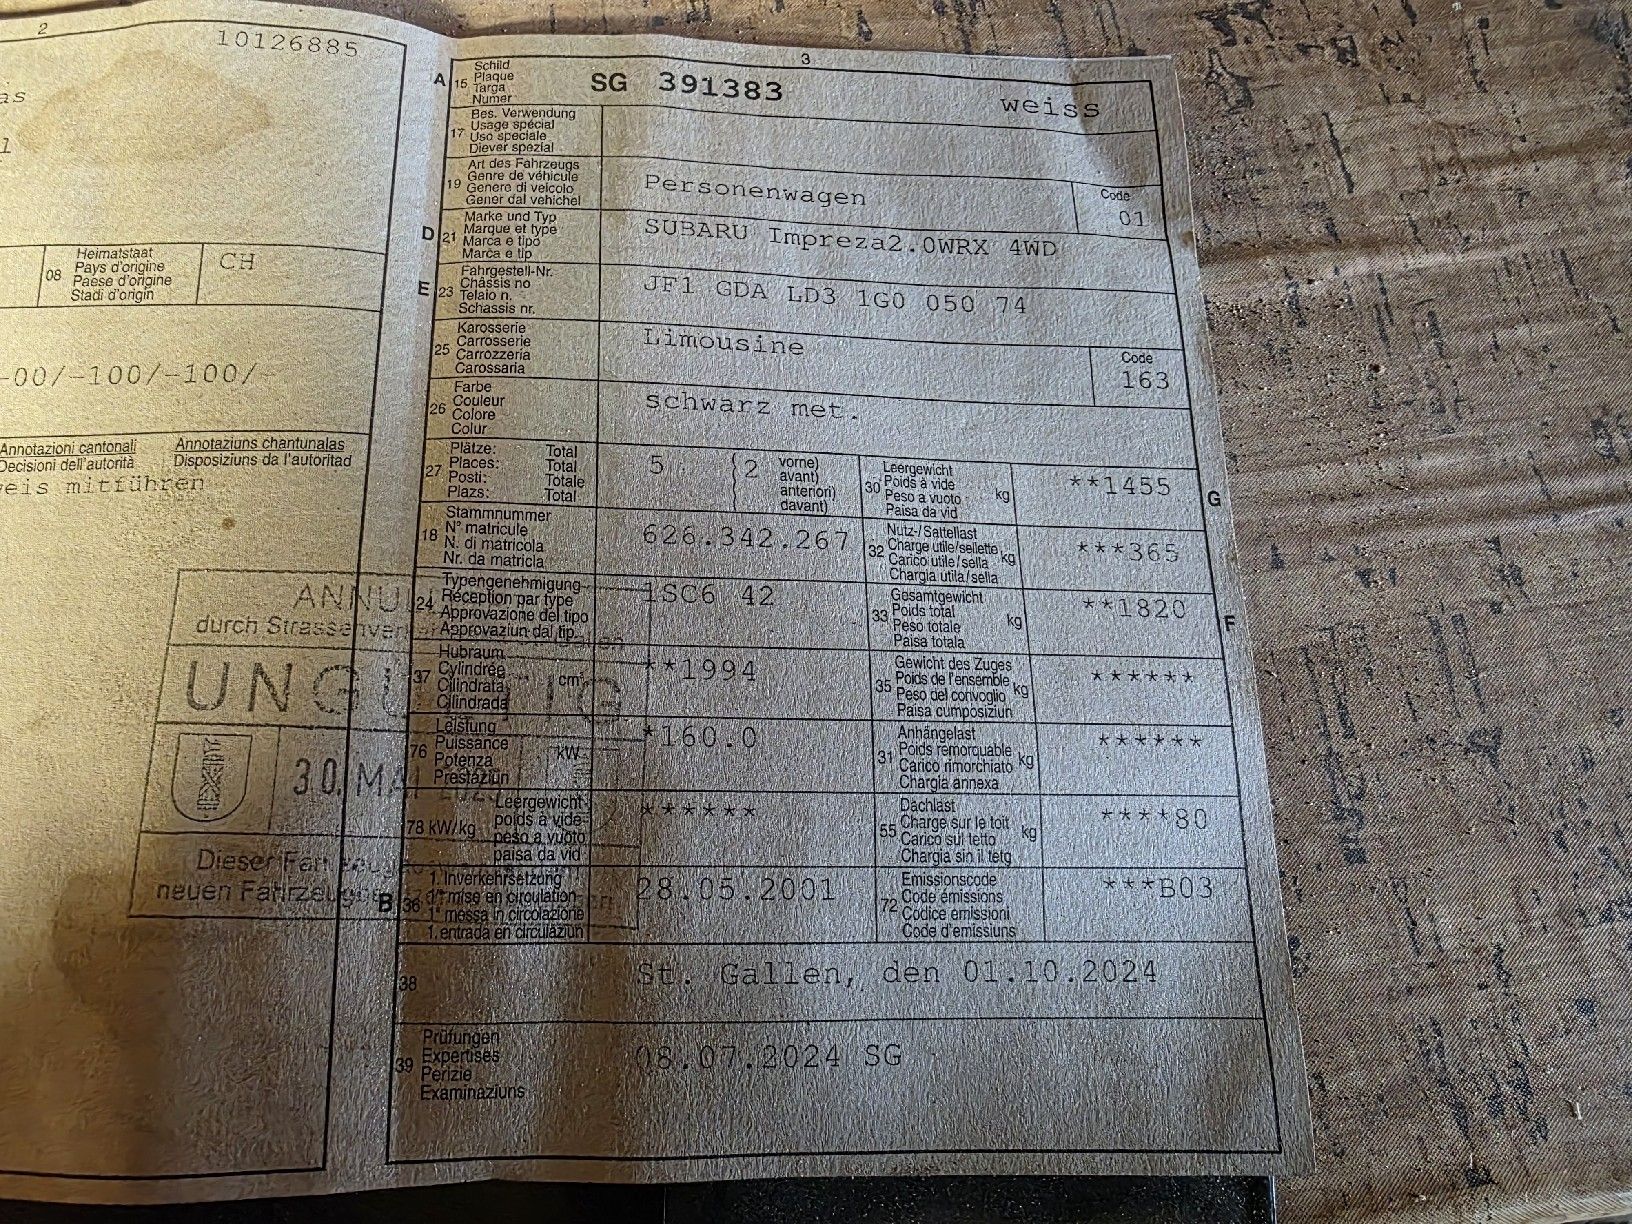 2
10126885
as
l
08 Heimatstaat
Pays d'origine
Paese d'origine
Stadi d'origin
CH
-00/-100/-100/-
Annotazioni cantonali Annotaziuns chantunalas
Decisioni dell'autorità Disposiziuns da l'autoritad
eis mitführen
ANNU
durch Strassenver
UNGÜLTIG
30. MAI
Dieser Fahrzeug
neuen Fahrzeug
3
A 15 Schild
Plaque
Targa
Numer
SG 391383 weiss
17 Bes. Verwendung
Usage spécial
Uso speciale
Diever spezial
19 Art des Fahrzeugs
Genre de véhicule
Genere di veicolo
Gener dal vehichel
Personenwagen
Code
01
D 21 Marke und Typ
Marque et type
Marca e tipo
Marca e tip
SUBARU Impreza2.0WRX 4WD
E 23 Fahrgestell-Nr.
Châssis no
Telaio n.
Schassis nr.
JF1 GDA LD3 1G0 050 74
25 Karosserie
Carrosserie
Carrozzeria
Carossaria
Limousine
Code
163
26 Farbe
Couleur
Colore
Colur
schwarz met.
27 Plätze: Total
Places: Total
Posti: Totale
Plazs: Total
5 2 vorne)
avant)
anteriori)
davant)
30 Leergewicht
Poids à vide
Peso a vuoto kg
Paisa da vid
**1455
G
18 Stammnummer
N° matricule
N. di matricola
Nr. da matricla
626.342.267
32 Nutz-/Sattellast
Charge utile/sellette kg
Carico utile/sella
Chargia utila/sella
***365
24 Typengenehmigung
Réception par type
Approvazione del tipo
Approvaziun dal tip
1SC6 42
33 Gesamtgewicht
Poids total
Peso totale kg
Paisa totala
**1820
F
37 Hubraum
Cylindrée
Cilindrata cm³
Cilindrada
**1994
35 Gewicht des Zuges
Poids de l'ensemble
Peso del convoglio kg
Paisa cumposiziun
******
76 Leistung
Puissance
Potenza kW
Prestaziun
*160.0
31 Anhängelast
Poids remorquable
Carico rimorchiato kg
Chargia annexa
******
78 kW/kg Leergewicht
poids à vide
peso a vuoto
paisa da vid
******
55 Dachlast
Charge sur le toit
Carico sul tetto kg
Chargia sin il tetg
****80
B 36 1. Inverkehrsetzung
1re mise en circulation
1a messa in circolazione
1. entrada en circulaziun
28.05.2001
72 Emissionscode
Code émissions
Codice emissioni
Code d'emissiuns
***B03
38
St. Gallen, den 01.10.2024
39 Prüfungen
Expertises
Perizie
Examinaziuns
08.07.2024 SG